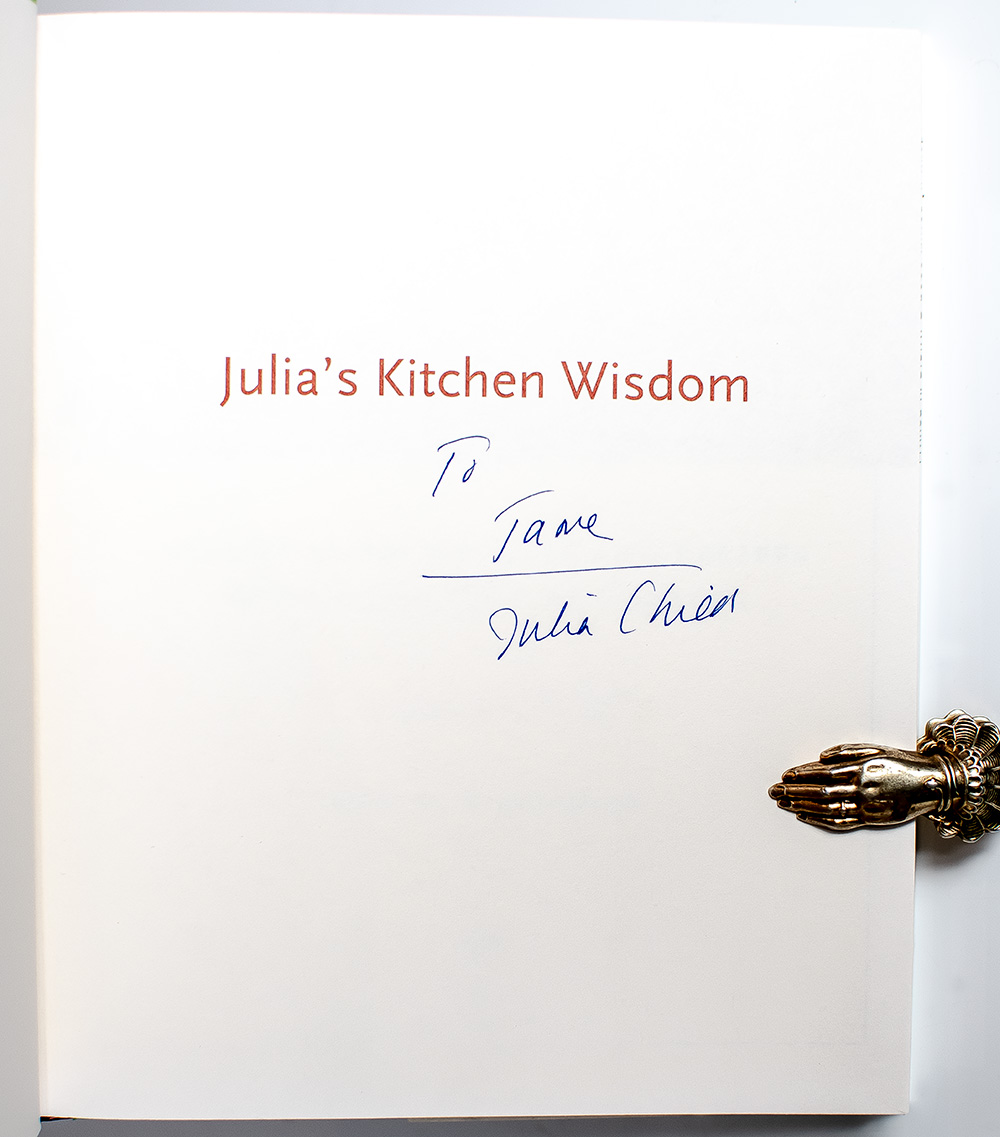 Julia's Kitchen Wisdom
To
Jane
Julia Child